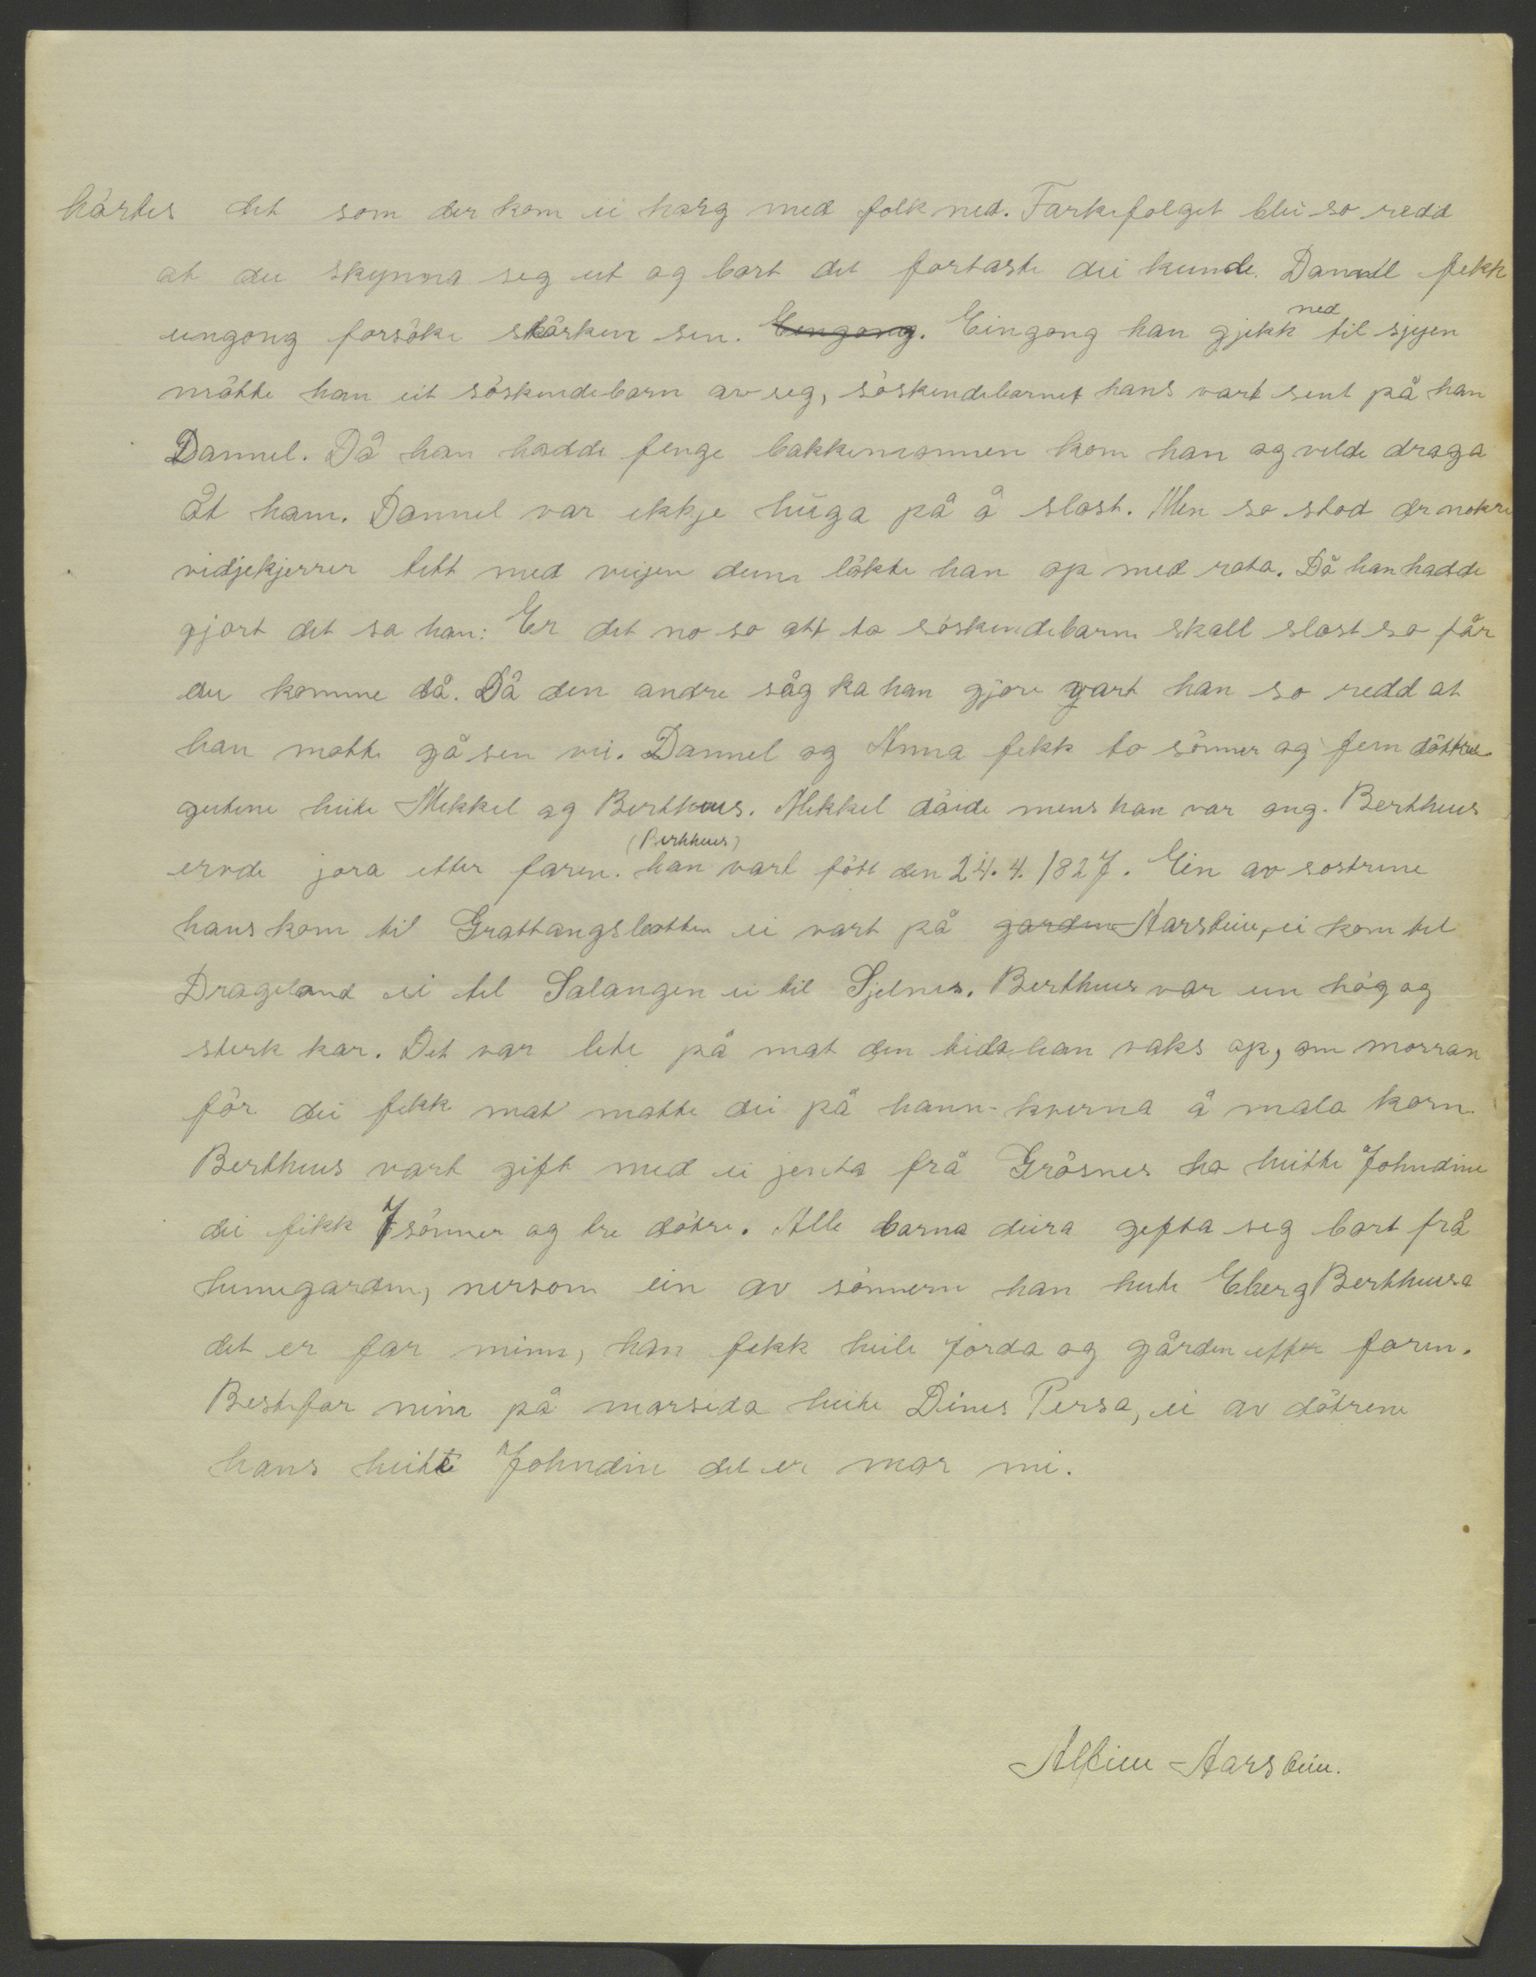 hörtes det som der kom ei horg med folk ned. Farkefolget blei so redd
at dei skynna seg ut og bort det fortaste dei kunde. Dannel fekk
eingong forsöke störken sin. Eingong. Eingong han gjekk ned til sjyen
mötte han eit söskendebarn av seg, söskendebarnet hans vart sent på han
Dannel. Då han hadde fenge bakkemannen kom han og vilde draga
åt ham. Dannel var ikkje huga på å slost. Men so stod der nokre
vidjekjerrer tett med veijen deim lökte han op med rota. Då han hadde
gjort det sa han: Er det no so att to söskendebarn skall slost so får
du komme då. Då den andre såg ka han gjore vart han so redd at
han motte gå sin vei. Dannel og Anna fekk to sönner og fem döttre
gutene heite Mekkel og Bertheus. Mekkel döide mens han var ong. Bertheus
ervde jora etter faren. (Bertheus) han vart fött den 24.4.1827. Ein av sostrene
hans kom til Grattangsbotten ei vart på garden Aarstein, ei kom til
Drageland ei til Salangen ei til Sjelnes. Bertheus var ein hög og
sterk kar. Det var lete på mat den tida han vaks op, om morran
för dei fekk mat motte dei på hann-kverna å mala korn.
Bertheus vart gift med ei jenta frå Grösnes ho heitte Johndine
dei fikk 7 sönner og tre dötre. Alle barna deira gefta seg bort frå
heimegarden, nersom ein av sönnerne han heite Eberg Bertheusa
det er far minn, han fekk heile jorda og gården etter faren.
Bestefar minn på morsida heite Dines Persa, ei av dötrene
hans heitte Johndine det er mor mi.
Alfine Aarstein.